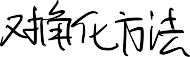 对角化方法